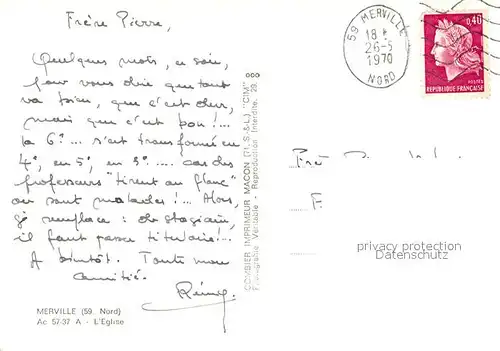 Frère Pierre,
Quelques mots, ce soir,
pour vous dire que tout
va bien, que c'est dur,
mais que c'est bon !...
la 6e... s'est transformée en
4e, en 5e, en 3e .... car des
professeurs "tirent au flanc"
ou sont malades !... Alors,
je remplace : de stagiaire,
il faut passer titulaire !..
A bientôt. Toute mon
amitié.
Rémy
MERVILLE (59. Nord)
Ac. 57-37 A - L'Eglise
COMBIER IMPRIMEUR MACON (71. S.-&-L.) "CIM"
Photographie Véritable - Reproduction Interdite.
59 MERVILLE
18 H
26-5
1970
NORD
0,40
POSTES
REPUBLIQUE FRANÇAISE
Frè
F
privacy protection
Datenschutz